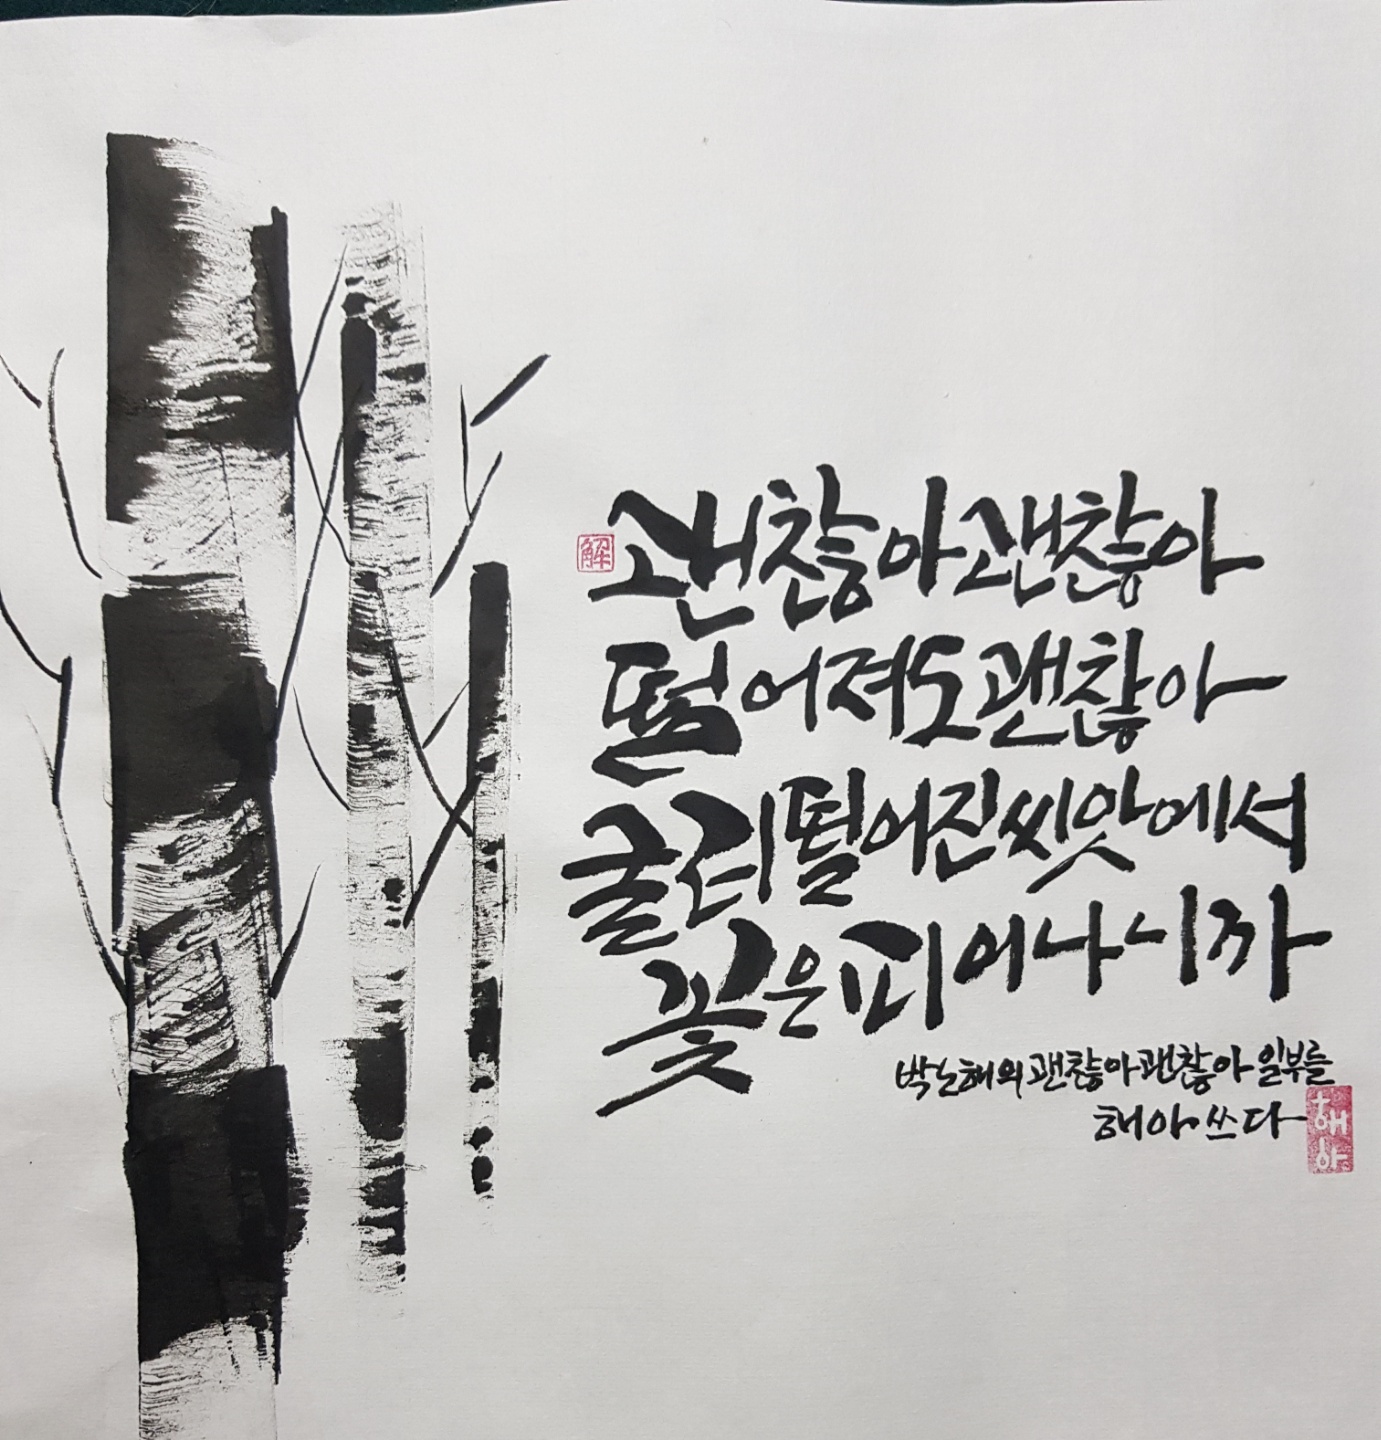 解
괜찮아 괜찮아
떨어져도 괜찮아
굴러 떨어진 씨앗에서
꽃은 피어나니까
박노해의 괜찮아 괜찮아 일부를
해아 쓰다
해아